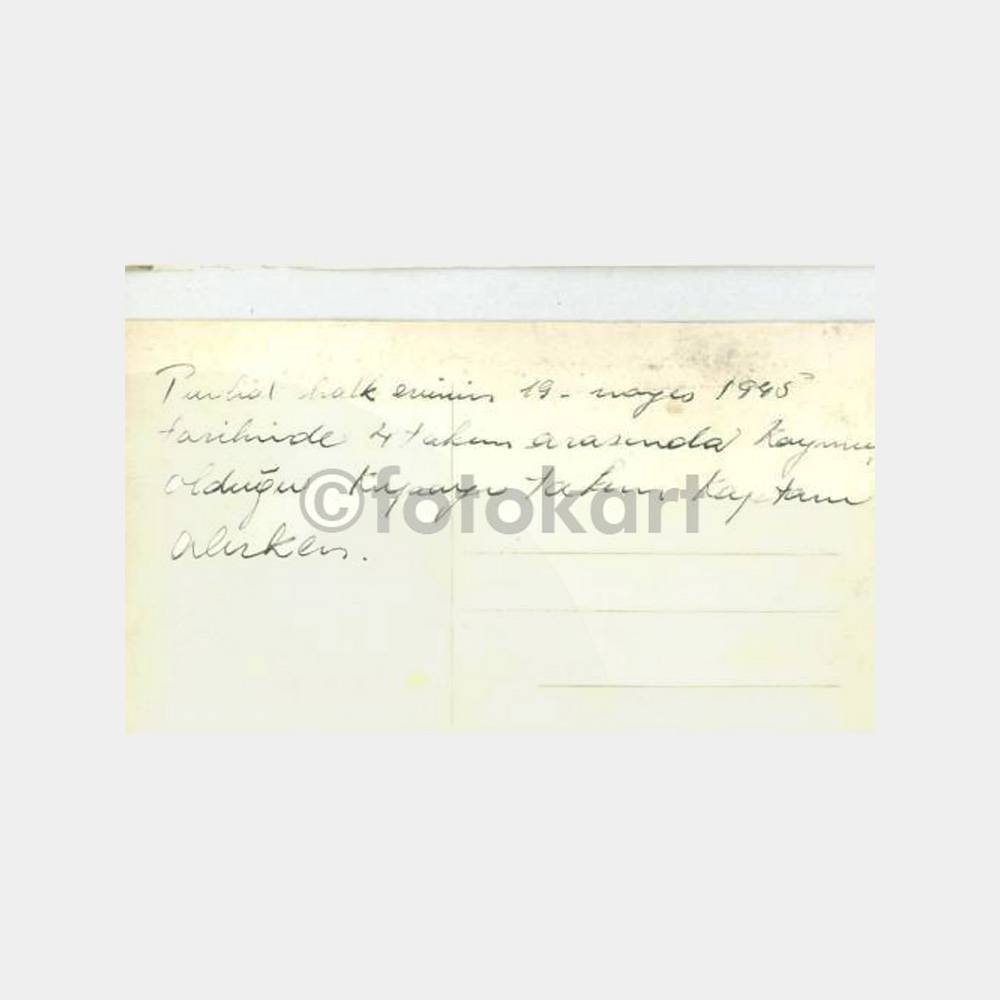 Turhal halk evinin 19-mayıs 1945
tarihinde 4 takım arasında Koymuş
olduğu Kupayı takım Kaptanı
alırken.
©fotokart